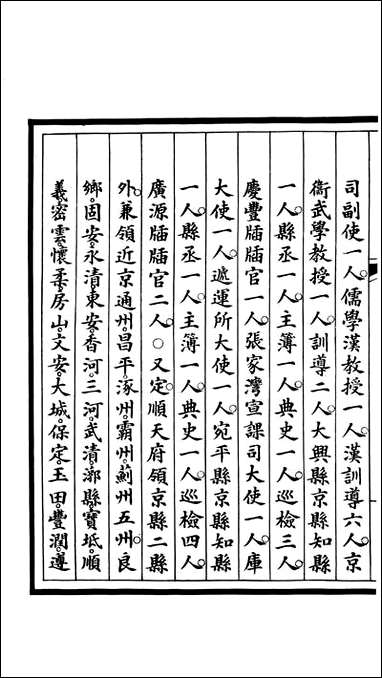 司副使一人儒學漢教授一人漢訓導六人京
衞武學教授一人訓導二人大興縣京縣知縣
一人縣丞一人主簿一人典史一人巡檢三人
慶豐牐牐官一人張家灣宣課司大使一人庫
大使一人遞運所大使一人宛平縣京縣知縣
一人縣丞一人主簿一人典史一人巡檢四人
廣源牐牐官二人○又定順天府領京縣二縣
外兼領近京通州昌平涿州霸州薊州五州良
鄉固安永清東安香河三河武清漷縣寶坻順
義密雲懷柔房山文安大城保定玉田豐潤遵